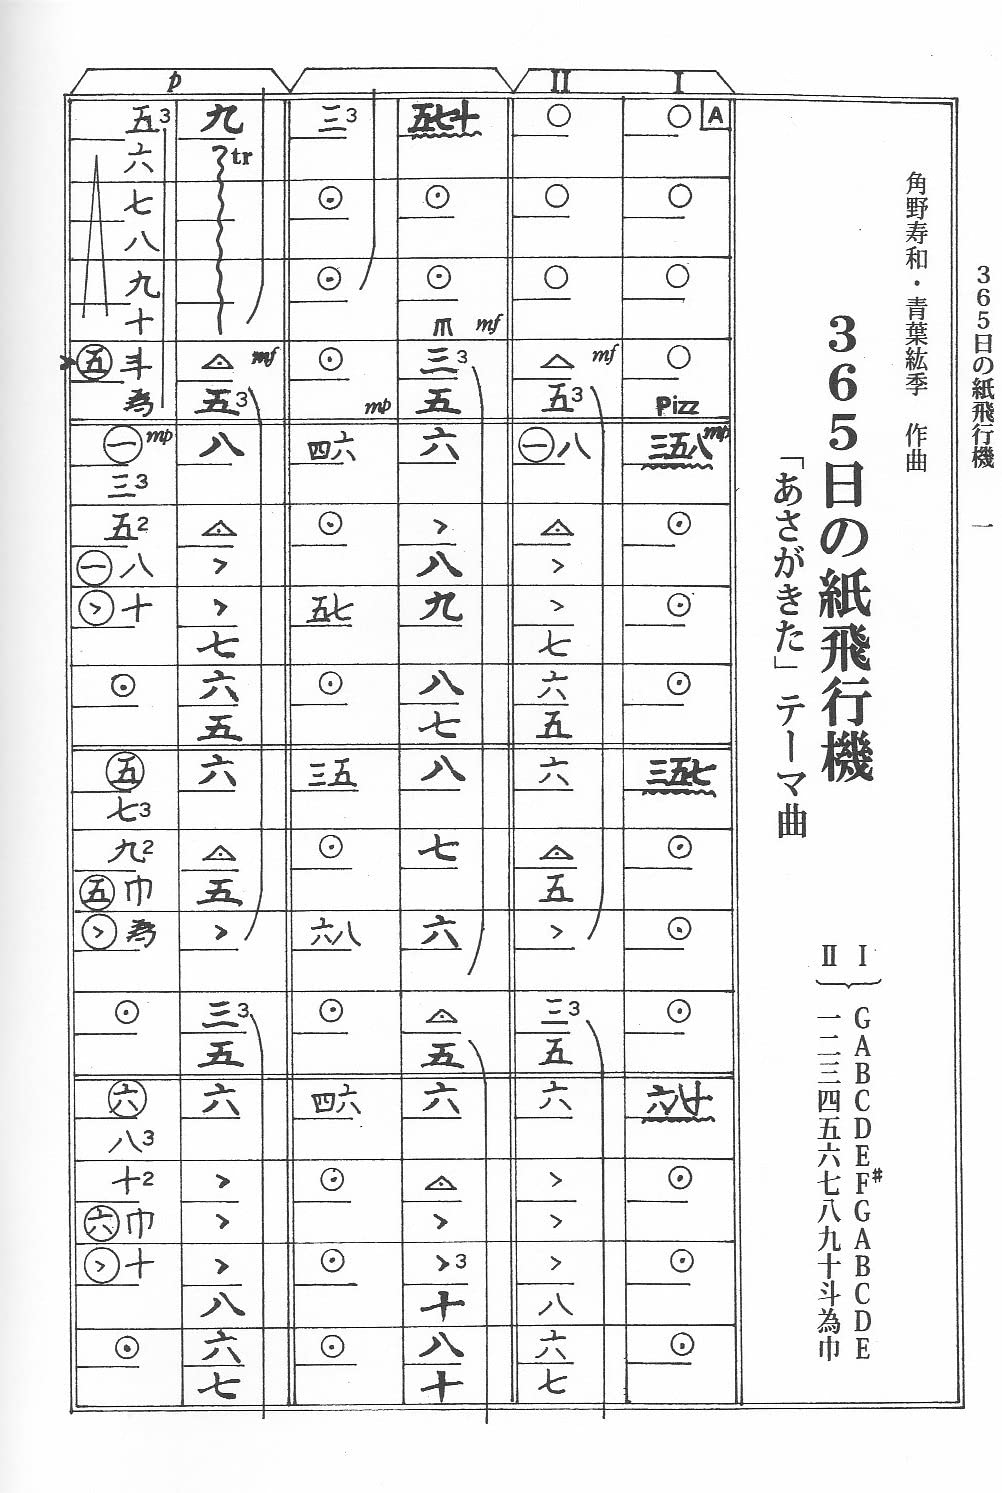 365日の紙飛行機 一
角野寿和・青葉紘季 作曲
365日の紙飛行機
「あさがきた」テーマ曲
I GABCDEF♯GABCDE
II 一二三四五六七八九十斗為巾
I
A ○ ○ ○ ○ Pizz 三五八 mp ⊙ ⊙ ⊙ 三五七 ⊙ ⊙ ⊙ 六八十 ⊙ ⊙ ⊙
II
○ ○ ○ △ mf 五3 ㊀八 △ > > 七 六 五 六 △ 五 > 三3 五 六 > > > 八 六 七
五七十 ⊙ ⊙ mf 三3 五 六 > 八 九 八 七 八 七 六 △ 五 六 △ > >3 十 八 十
三3 ⊙ ⊙ ⊙ mp 四六 ⊙ 五七 ⊙ 三五 ⊙ 六八 ⊙ 四六 ⊙ ⊙ ⊙
p
九 tr △ mf 五3 八 △ > > 七 六 五 六 △ 五 > 三3 五 六 > > > 八 六 七
五3 六 七 八 九 十 > ㊄斗 為 ㊀ mp 三3 五2 ㊀八 >十 ⊙ ㊄ 七3 九2 ㊄巾 >為 ⊙ ㊅ 八3 十2 ㊅巾 >十 ⊙